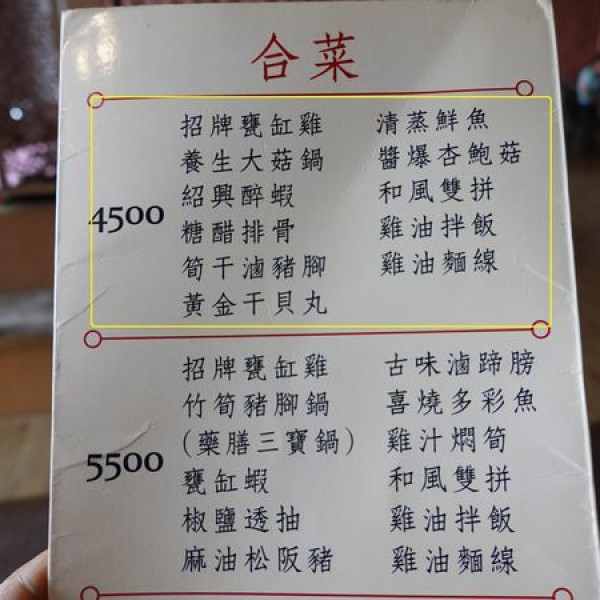 合菜
4500
招牌甕缸雞
養生大菇鍋
紹興醉蝦
糖醋排骨
筍干滷豬腳
黃金干貝丸
清蒸鮮魚
醬爆杏鮑菇
和風雙拼
雞油拌飯
雞油麵線
5500
招牌甕缸雞
竹筍豬腳鍋
(藥膳三寶鍋)
甕缸蝦
椒鹽透抽
麻油松阪豬
古味滷蹄膀
喜燒多彩魚
雞汁燜筍
和風雙拼
雞油拌飯
雞油麵線